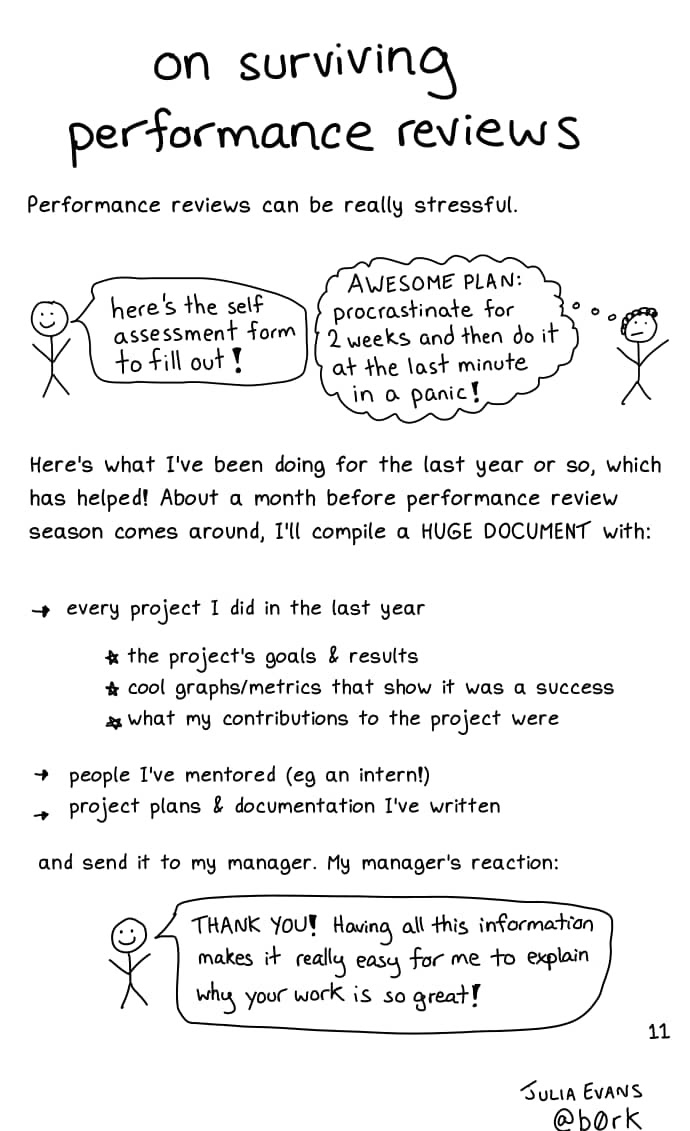 on surviving
performance reviews
Performance reviews can be really stressful.
here's the self
assessment form
to fill out!
AWESOME PLAN:
procrastinate for
2 weeks and then do it
at the last minute
in a panic!
Here's what I've been doing for the last year or so, which
has helped! About a month before performance review
season comes around, I'll compile a HUGE DOCUMENT with:
→ every project I did in the last year
★ the project's goals & results
★ cool graphs/metrics that show it was a success
★ what my contributions to the project were
→ people I've mentored (eg an intern!)
→ project plans & documentation I've written
and send it to my manager. My manager's reaction:
THANK YOU! Having all this information
makes it really easy for me to explain
why your work is so great!
11
JULIA EVANS
@b0rk